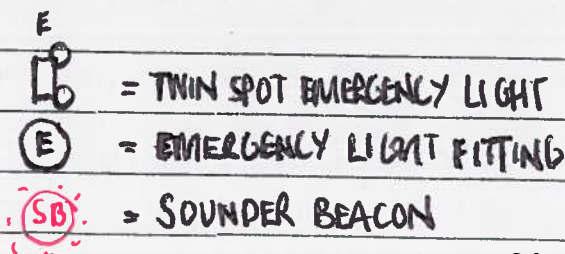 E
= TWIN SPOT EMERGENCY LIGHT
E = EMERGENCY LIGHT FITTING
SB = SOUNDER BEACON